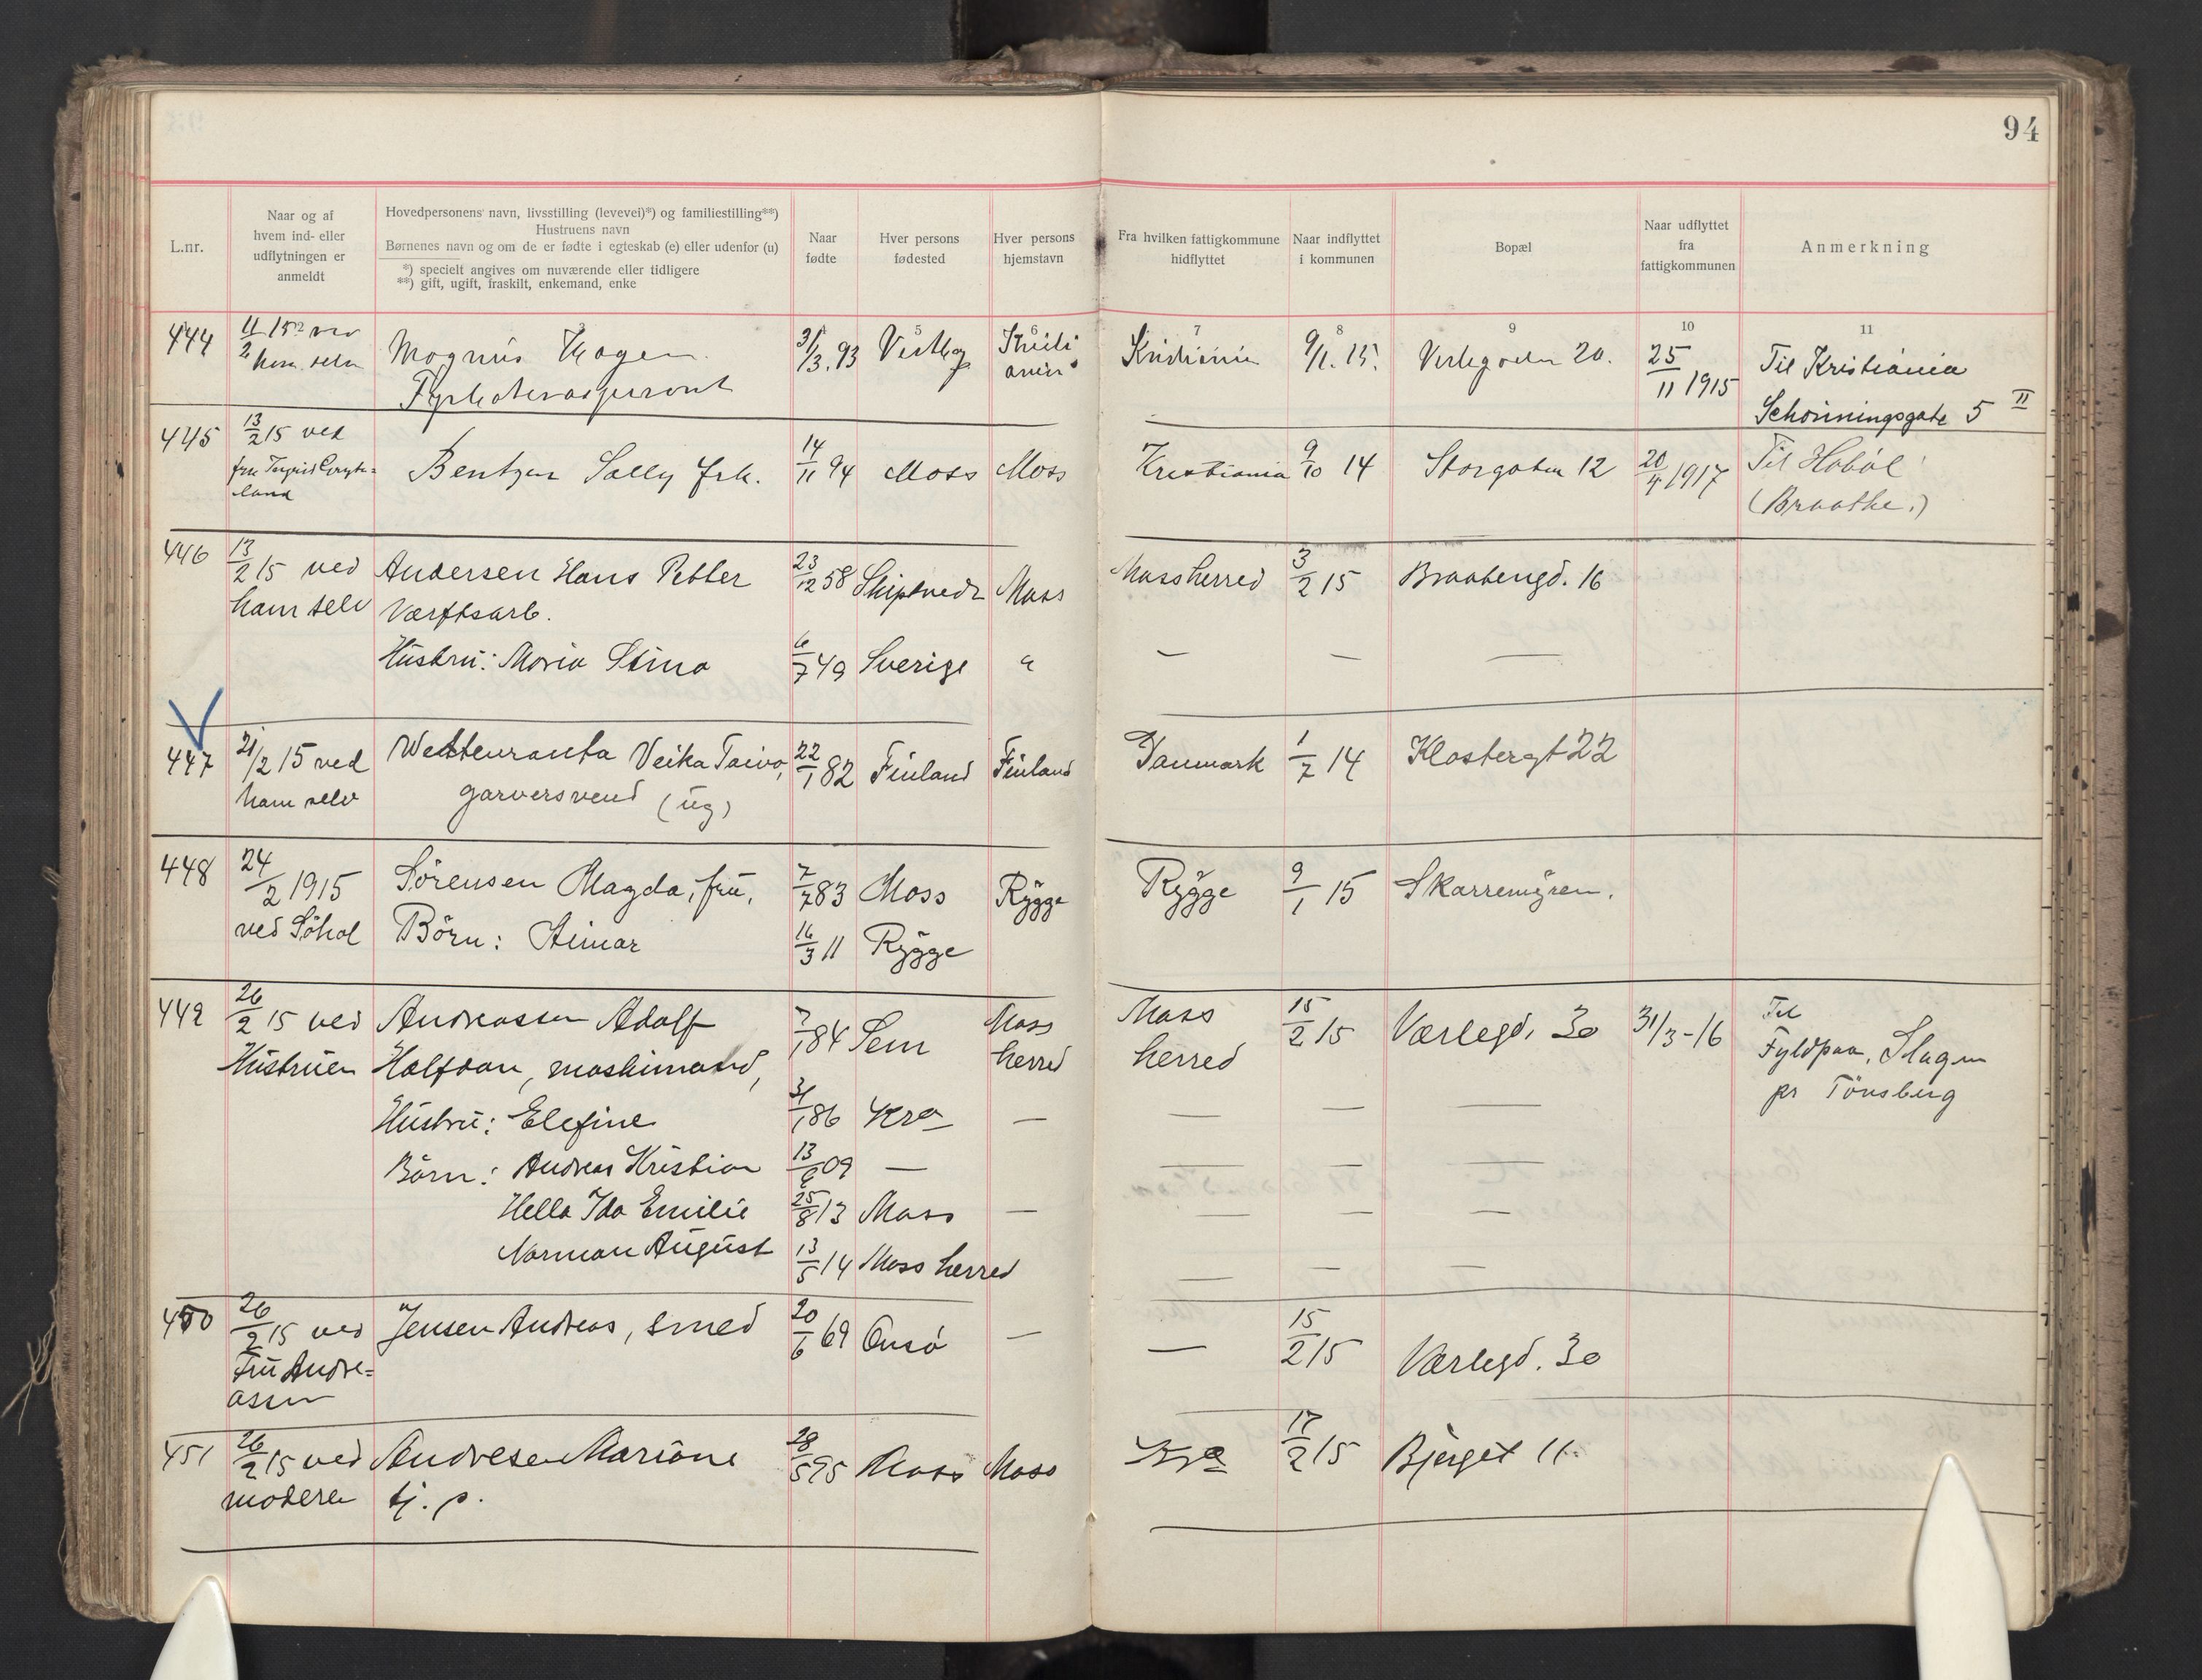 94
L.nr.
Naar og af
hvem ind- eller
udflytningen er
anmeldt
Hovedpersonens navn, livsstilling (levevei)*) og familiestilling**)
Hustruens navn
Børnenes navn og om de er fødte i egteskab (e) eller udenfor (u)
*) specielt angives om nuværende eller tidligere
**) gift, ugift, fraskilt, enkemand, enke
Naar
fødte
Hver persons
fødested
Hver persons
hjemstavn
Fra hvilken fattigkommune
hidflyttet
Naar indflyttet
i kommunen
Bopæl
Naar udflyttet
fra
fattigkommunen
Anmerkning
5 6 7 8 9 10 11
444 11/2 15 ved Magnus Hagen 31/3.93 Vestby Kristi Kristiania 9/1.15. Verlegaden 20. 25/11 1915 Til Kristiania
ham selv ania
Schønningsgate 5 II
445 13/2 15 ved Bentzen Sally frk. 14/11 94 Moss Moss Kristiania 9/10 14 Storgaten 12 20/4 1917 Til Hobøl
fru Ingrid
land (Braathe.)
446 13/2 15 ved Andersen Hans Petter 23/12 58 Skiptvedt Moss Moss herred 3/2 15 Braatengd. 16
ham selv Værftsarb.
Hustru: Maria Stina 6/7 49 Sverige " — — —
447 21/2 15 ved Wettenranta Veika Taivo, 22/1 82 Finland Finland Danmark 1/7 14 Klostergt 22
ham selv garversvend (ug)
448 24/2 1915 Sørensen Magda, fru, 7/7 83 Moss Rygge Rygge 9/1 15 Skarremyren.
ved Søhol Børn: Aimar 16/3 11 Rygge
449 26/2 15 ved Andreassen Adolf 7/1 84 Sem Moss Moss 15/2 15 Værlegd. 30 31/3-16 Til
Hustruen Halfdan, maskinmand, herred herred Fyldpaa, Slagen
pr Tønsberg
Hustru: Elefine 31/1 86 Kra — — — —
Børn: Andreas Kristian 13/6 09 — — — —
Hella Ida Emilie 25/8 13 Moss — — — —
Norman August 13/5 14 Moss herred — — —
450 26/2 15 ved Jensen Andreas, smed 20/6 69 Onsø — — 15/2 15 Værlegd. 30
Fru Andre=
assen
451 26/2 15 ved Andresen Marione 28/5 95 Moss Moss Kra 17/2 15 Bjerget 11.
moderen tj. p.